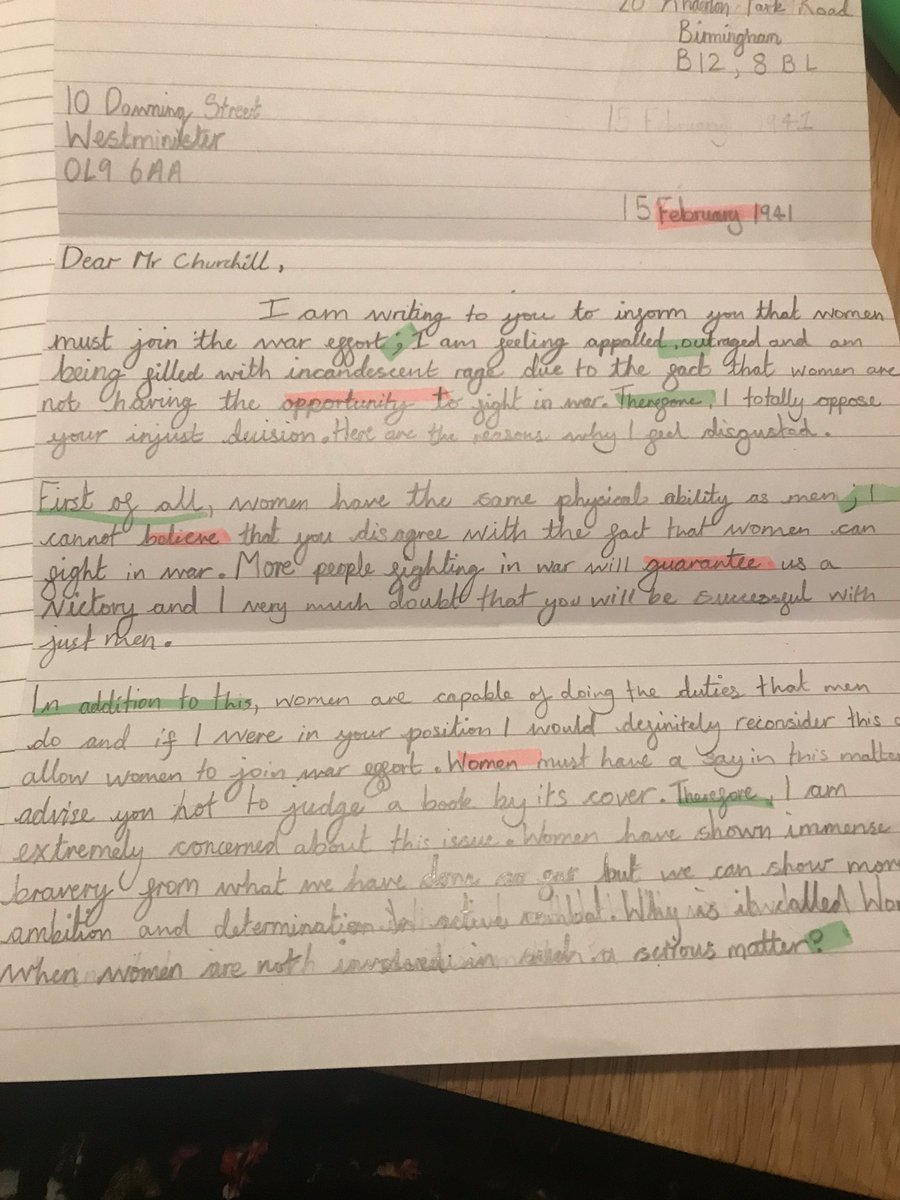 Park Road
Birmingham
B12, 8 BL
10 Downing Street
Westminister
OL9 6AA
15 February 1941
15 February 1941
Dear Mr Churchill,
I am writing to you to inform you that women
must join the war effort; I am feeling appalled, outraged and am
being filled with incandescent rage due to the fact that women are
not having the opportunity to fight in war. Therefore, I totally oppose
your injust decision. Here are the reasons why I feel disgusted.
First of all, women have the same physical ability as men; I
cannot believe that you disagree with the fact that women can
fight in war. More people fighting in war will guarantee us a
victory and I very much doubt that you will be successful with
just men.
In addition to this, women are capable of doing the duties that men
do and if I were in your position I would definitely reconsider this
allow women to join war effort. Women must have a say in this matter
advise you not to judge a book by its cover. Therefore, I am
extremely concerned about this issue. Women have shown immense
bravery from what we have done so far but we can show more
ambition and determination in active combat. Why is it called
when women are not involved in such a serious matter?